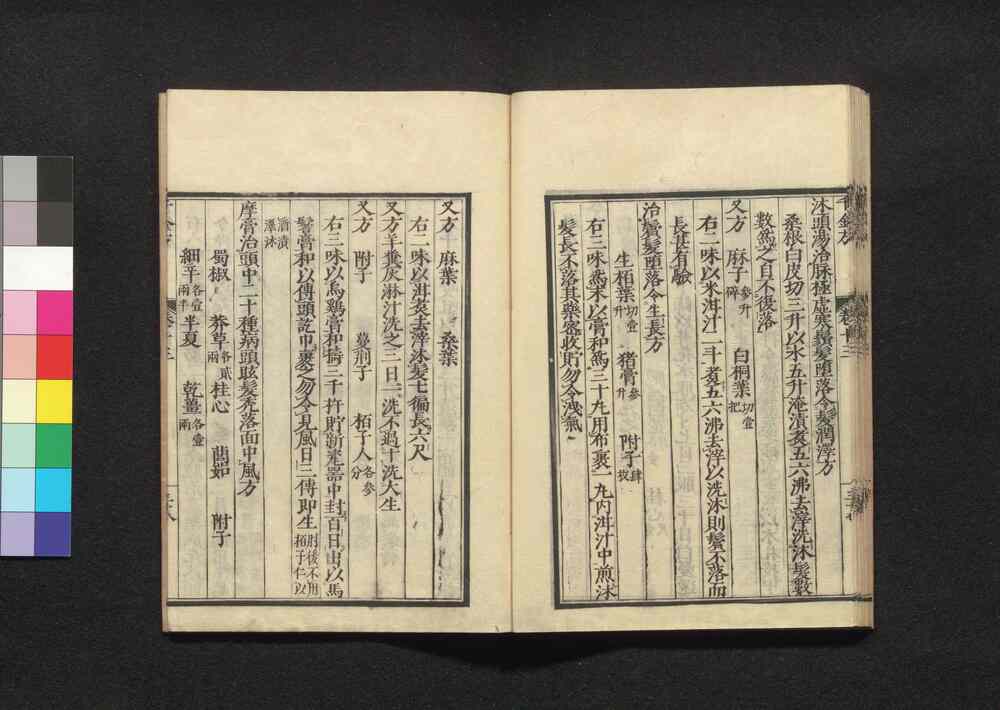 沐頭湯治脉極虛寒鬚髮堕落令髮潤澤方
桑根白皮切三升以水五升淹漬煮五六沸去滓洗沐髮數
數爲之自不復落
又方 麻子參升碎 白桐葉切壹把
右二味以米泔汁二斗煮五六沸去滓以洗沐則鬢不落而
長甚有驗
治鬢髮堕落令生長方
生柏葉切壹升 猪膏參升 附子肆枚
右三味爲末以膏和爲三十九用布裹一丸内泔汁中煎沐
髮長不落其藥密收貯勿令洩氣
又方 麻葉 桑葉
右二味以泔煮去滓沐髮七徧長六尺
又方羊糞灰淋汁洗之三日一洗不過十洗大生
又方 附子 蔓荆子 栢子人各參分
右三味以烏鷄膏和擣三千杵貯新瓷器中封百日出以馬
鬐膏和以傅頭訖巾裹之勿令見風日三傅即生肘後不用栢子仁以
酒漬澤沐
摩膏治頭中二十種病頭眩髮禿落面中風方
蜀椒 莽草各貳兩 桂心 䕡茹 附子
細辛各壹兩半 半夏 乾薑各壹兩